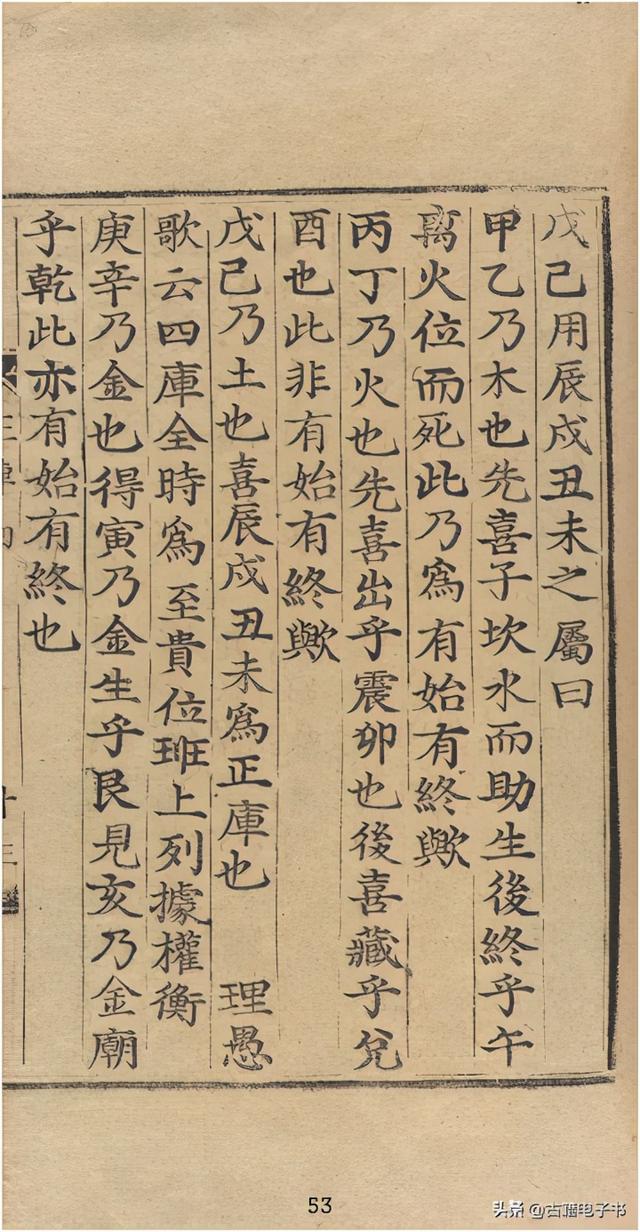 戊己用辰戍丑未之屬曰
甲乙乃木也先喜子坎水而助生後終乎午
离火位而死此乃爲有始有終歟
丙丁乃火也先喜出乎震卯也後喜藏乎兌
酉也此非有始有終歟
戊己乃土也喜辰戍丑未爲正庫也 理愚
歌云四庫全時爲至貴位班上列據權衡
庚辛乃金也得寅乃金生乎艮見亥乃金廟
乎乾此亦有始有終也
53
头条@古籍电子书